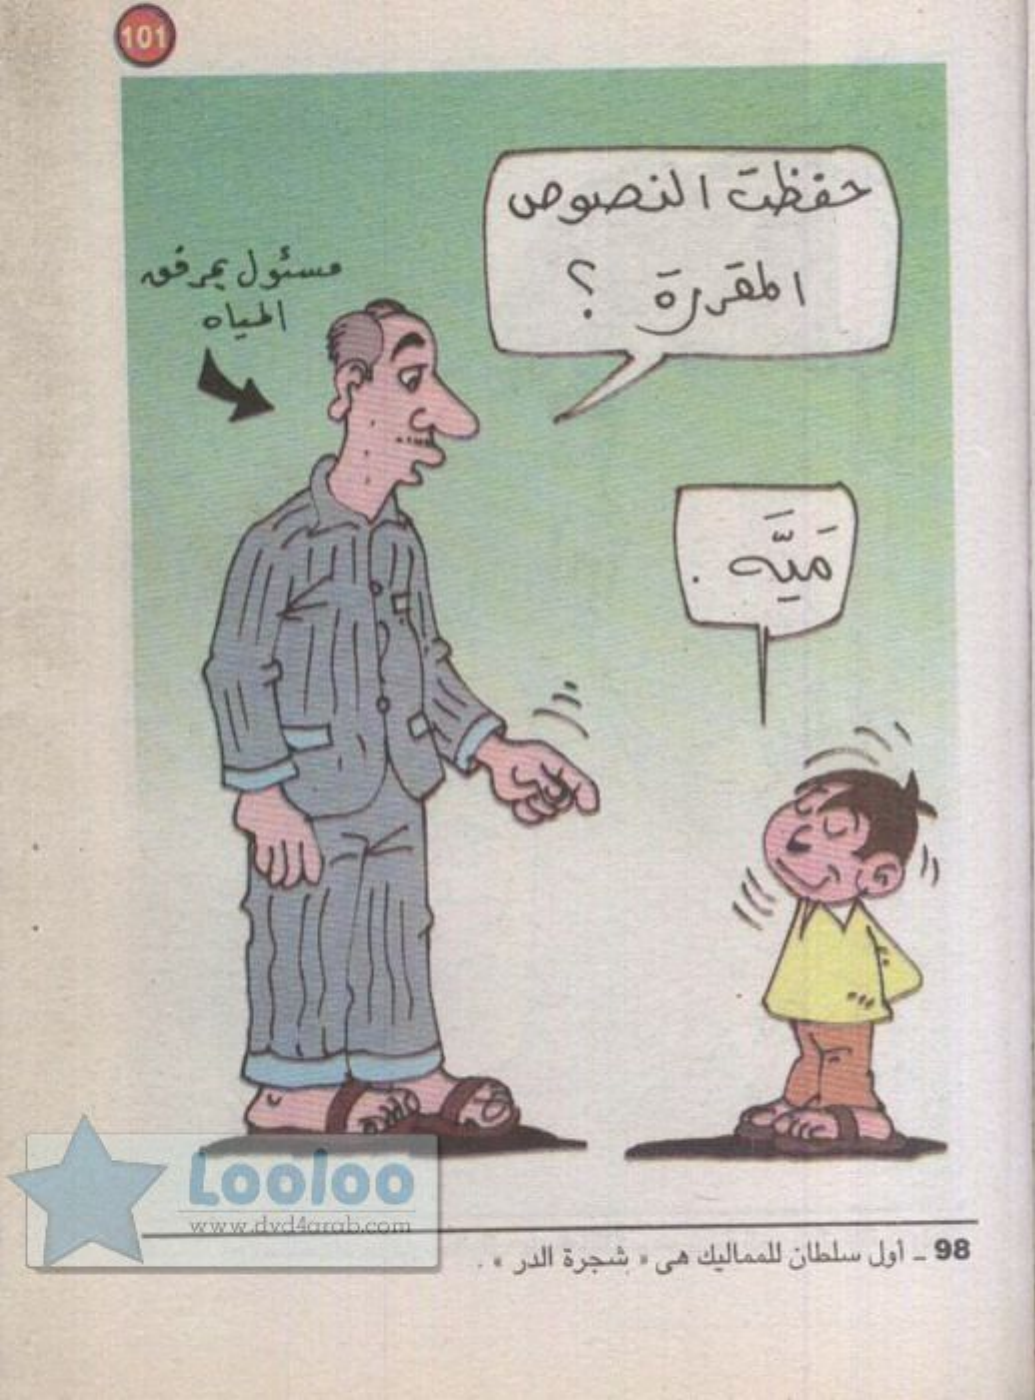 101
حفظت النصوص
المقررة ؟
مسئول بمرفق
المياه
مَيَّه .
Looloo
www.dvd4arab.com
98 ـ أول سلطان للمماليك هى « شجرة الدر » .